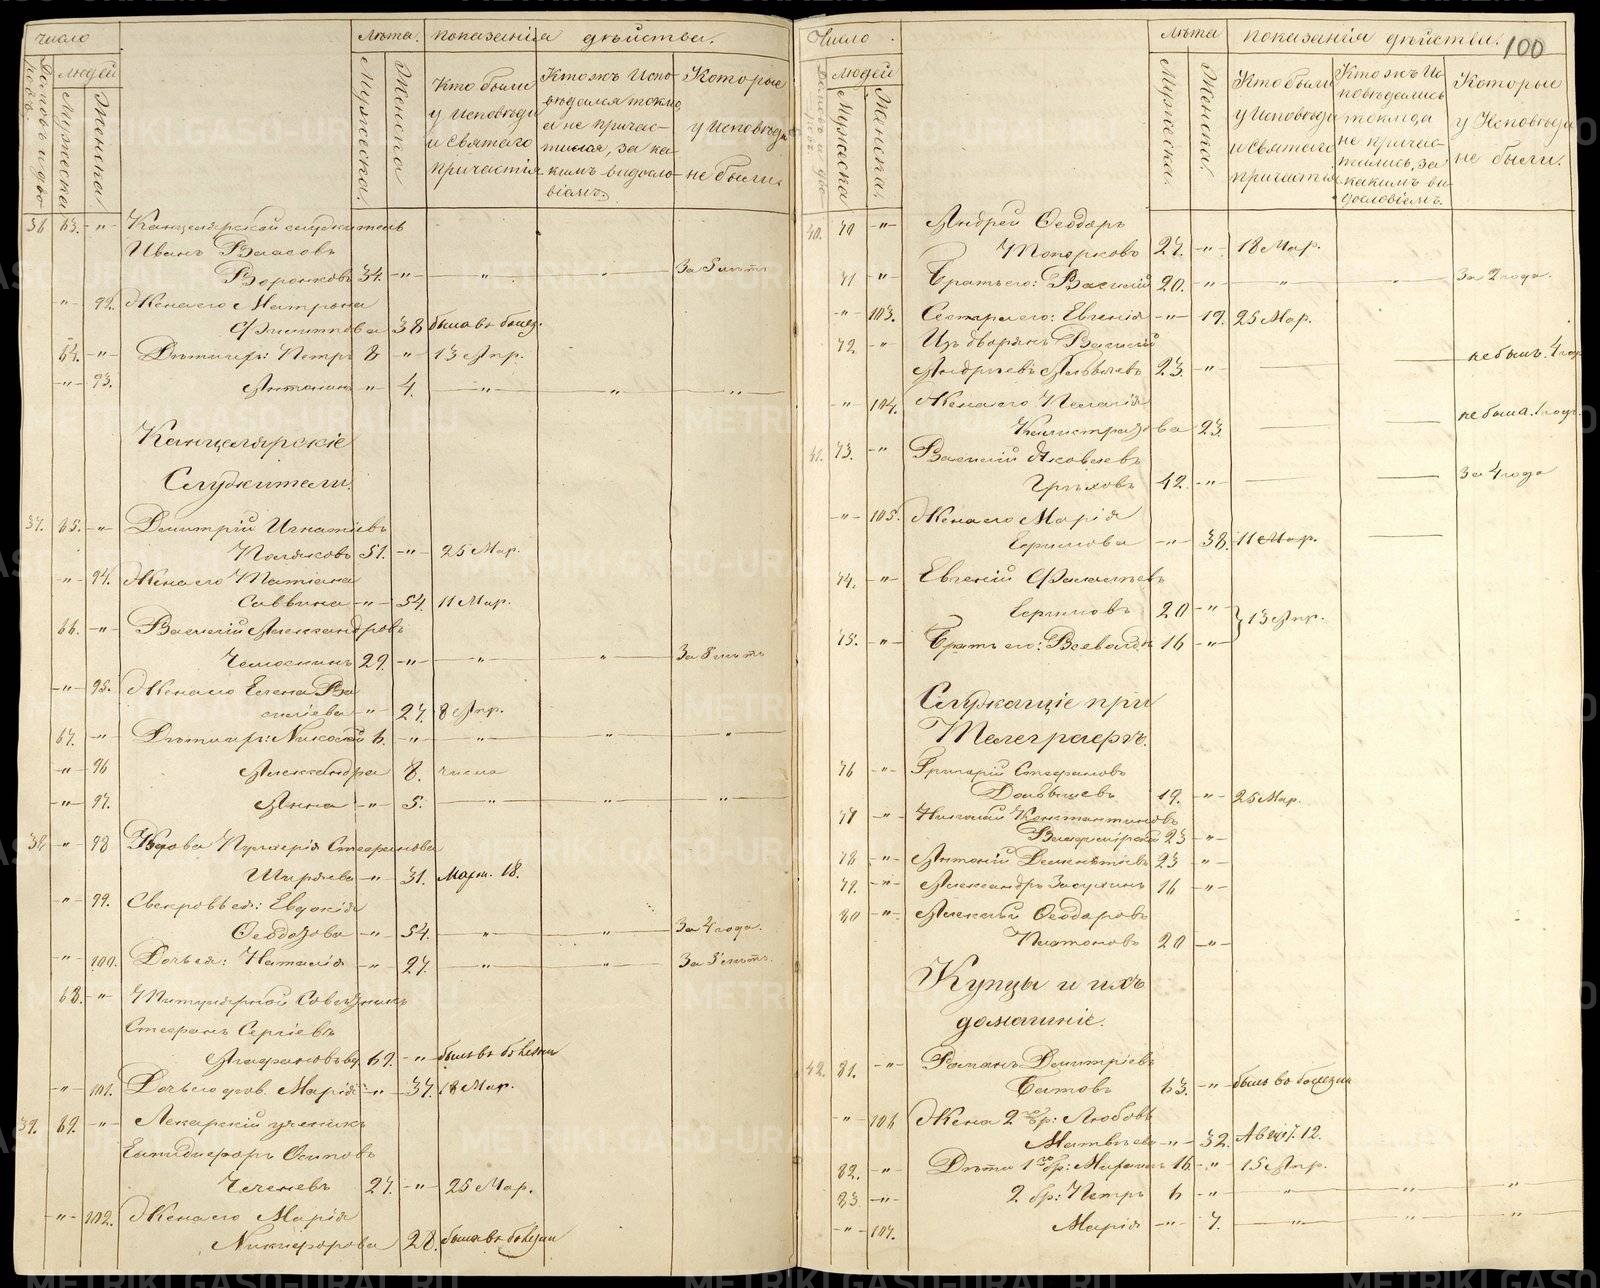 Число
Лѣта. показанія дѣйства.
людей
Домовъ
Мужеска
Женска
Мужеска.
Женска
Кто были
у исповѣди
и святаго
причастія
Кто жъ испо-
вѣдался токмо
а не причас-
тился, за ка-
кимъ видосло-
віемъ.
Которые
у исповѣди
не были.
36 63. -"- Канцелярской служитель
Иванъ Власовъ
Воронковъ 34. -"- " " За 5 лѣтъ
-"- 92. Жена его Матрона
Филиппова 38 была въ болез.
64. -"- Дѣти ихъ: Петръ 8 -"- 13 Апр.
-"- 93. Антонина -"- 4. " " "
Канцелярскіе
Служители.
37. 65. -"- Димитрій Игнатіевъ
Поляковъ 51. -"- 25 Мар.
-"- 94. Жена его Татіана
Саввина -"- 54. 11 Мар.
66. -"- Василій Александровъ
29. -"- " " За 8 лѣтъ
-"- 95. Жена его Елена Ва
силіева -"- 27. 8 Апр.
67. -"- Дѣти ихъ: Николай 6. -"- " " "
-"- 96 Александра 8. числа
-"- 97. Анна -"- 5. " " "
38. -"- 98 Вдова Пульхерія Стефанова
Ширяева -"- 31. Март. 18.
-"- 99. Свекровь ея: Евдокія
Ѳеодорова -"- 54. " " За 4 года.
-"- 100. Дочь ея: Наталія -"- 27. " " За 5 лѣтъ.
68. -"- Титулярной Совѣтникъ
Стефанъ Сергіевъ
69. -"- былъ въ болезни
-"- 101. Дочь его дев. Марія -"- 37. 18 Мар.
39. 69. -"- Лекарскій ученикъ
Осиповъ
27. -"- 25 Мар.
-"- 102. Жена его Марія
Никифорова 28. была въ болезни
100
Число
Лѣта показанія дѣйства.
людей
Мужеска
Женска.
Мужеска.
Женска.
Кто были
у исповѣди
и святаго
причастія
Кто жъ ис
повѣдались
токмо а
не причас-
тились, за
какимъ ви
дословіемъ.
Которые
у исповѣди
не были.
40. 70 -"- Андрей Ѳеодоръ
Топорковъ 27. -"- 18 Мар.
71 -"- Братъ его: Василій 20. -"- " " За 2 года.
-"- 103. Сестра его: Евгенія -"- 19. 25 Мар.
72. -"- Изъ дворянъ Василій
Андреевъ 23. -"- не былъ. 4 год
-"- 104. Жена его Пелагія
Калистратова 23. не была. 1 годъ.
41. 73. -"- Василій Яковлевъ
Грѣховъ 42. -"- За 4 года
-"- 105. Жена его Марія
Ефимова -"- 38. 11 Мар.
74. -"- Евгеній
20 -"-
13 Апр.
75. -"- Братъ его: Всеволодъ 16 -"-
Служащіе при
Телеграфѣ.
76 -"- Григорій Стефановъ
19. -"- 25 Мар.
77 -"- Николай Константиновъ
23 -"-
78 -"- Антоній 23 -"-
79. -"- Александръ Засухинъ 16 -"-
80 -"- Алексѣй Ѳеодоровъ
Платоновъ 20 -"-
Купцы и ихъ
домашніе.
42. 81. -"- Романъ Димитріевъ
Батовъ 63. -"- былъ въ болезни
-"- 106 Жена 2 бр: Любовь
Матвѣева -"- 32. Август. 12.
82. -"- Дѣти 1го бр: Михаилъ 16. -"- 15 Апр.
83 -"- 2 бр: Петръ 6 -"- " " "
-"- 107. Марія -"- 7. " " "
METRIKI.GASO-URAL.RU